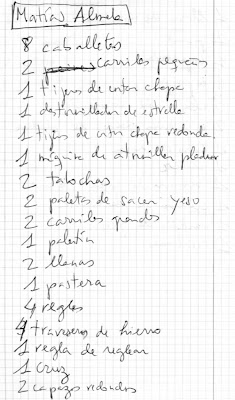 Matías Almela
8 caballetes
2 carriles pequeños
1 tijeras de cortar chapa
1 destornillador de estrella
1 tijeras de cortar chapa redonda
1 máquina de atornillar pladur
2 talochas
2 paletas de sacar yeso
2 carriles grandes
1 paletín
2 llanas
1 pastera
4 reglas
4 traveseros de hierro
1 regla de reglear
1 cruz
2 capazos redondos